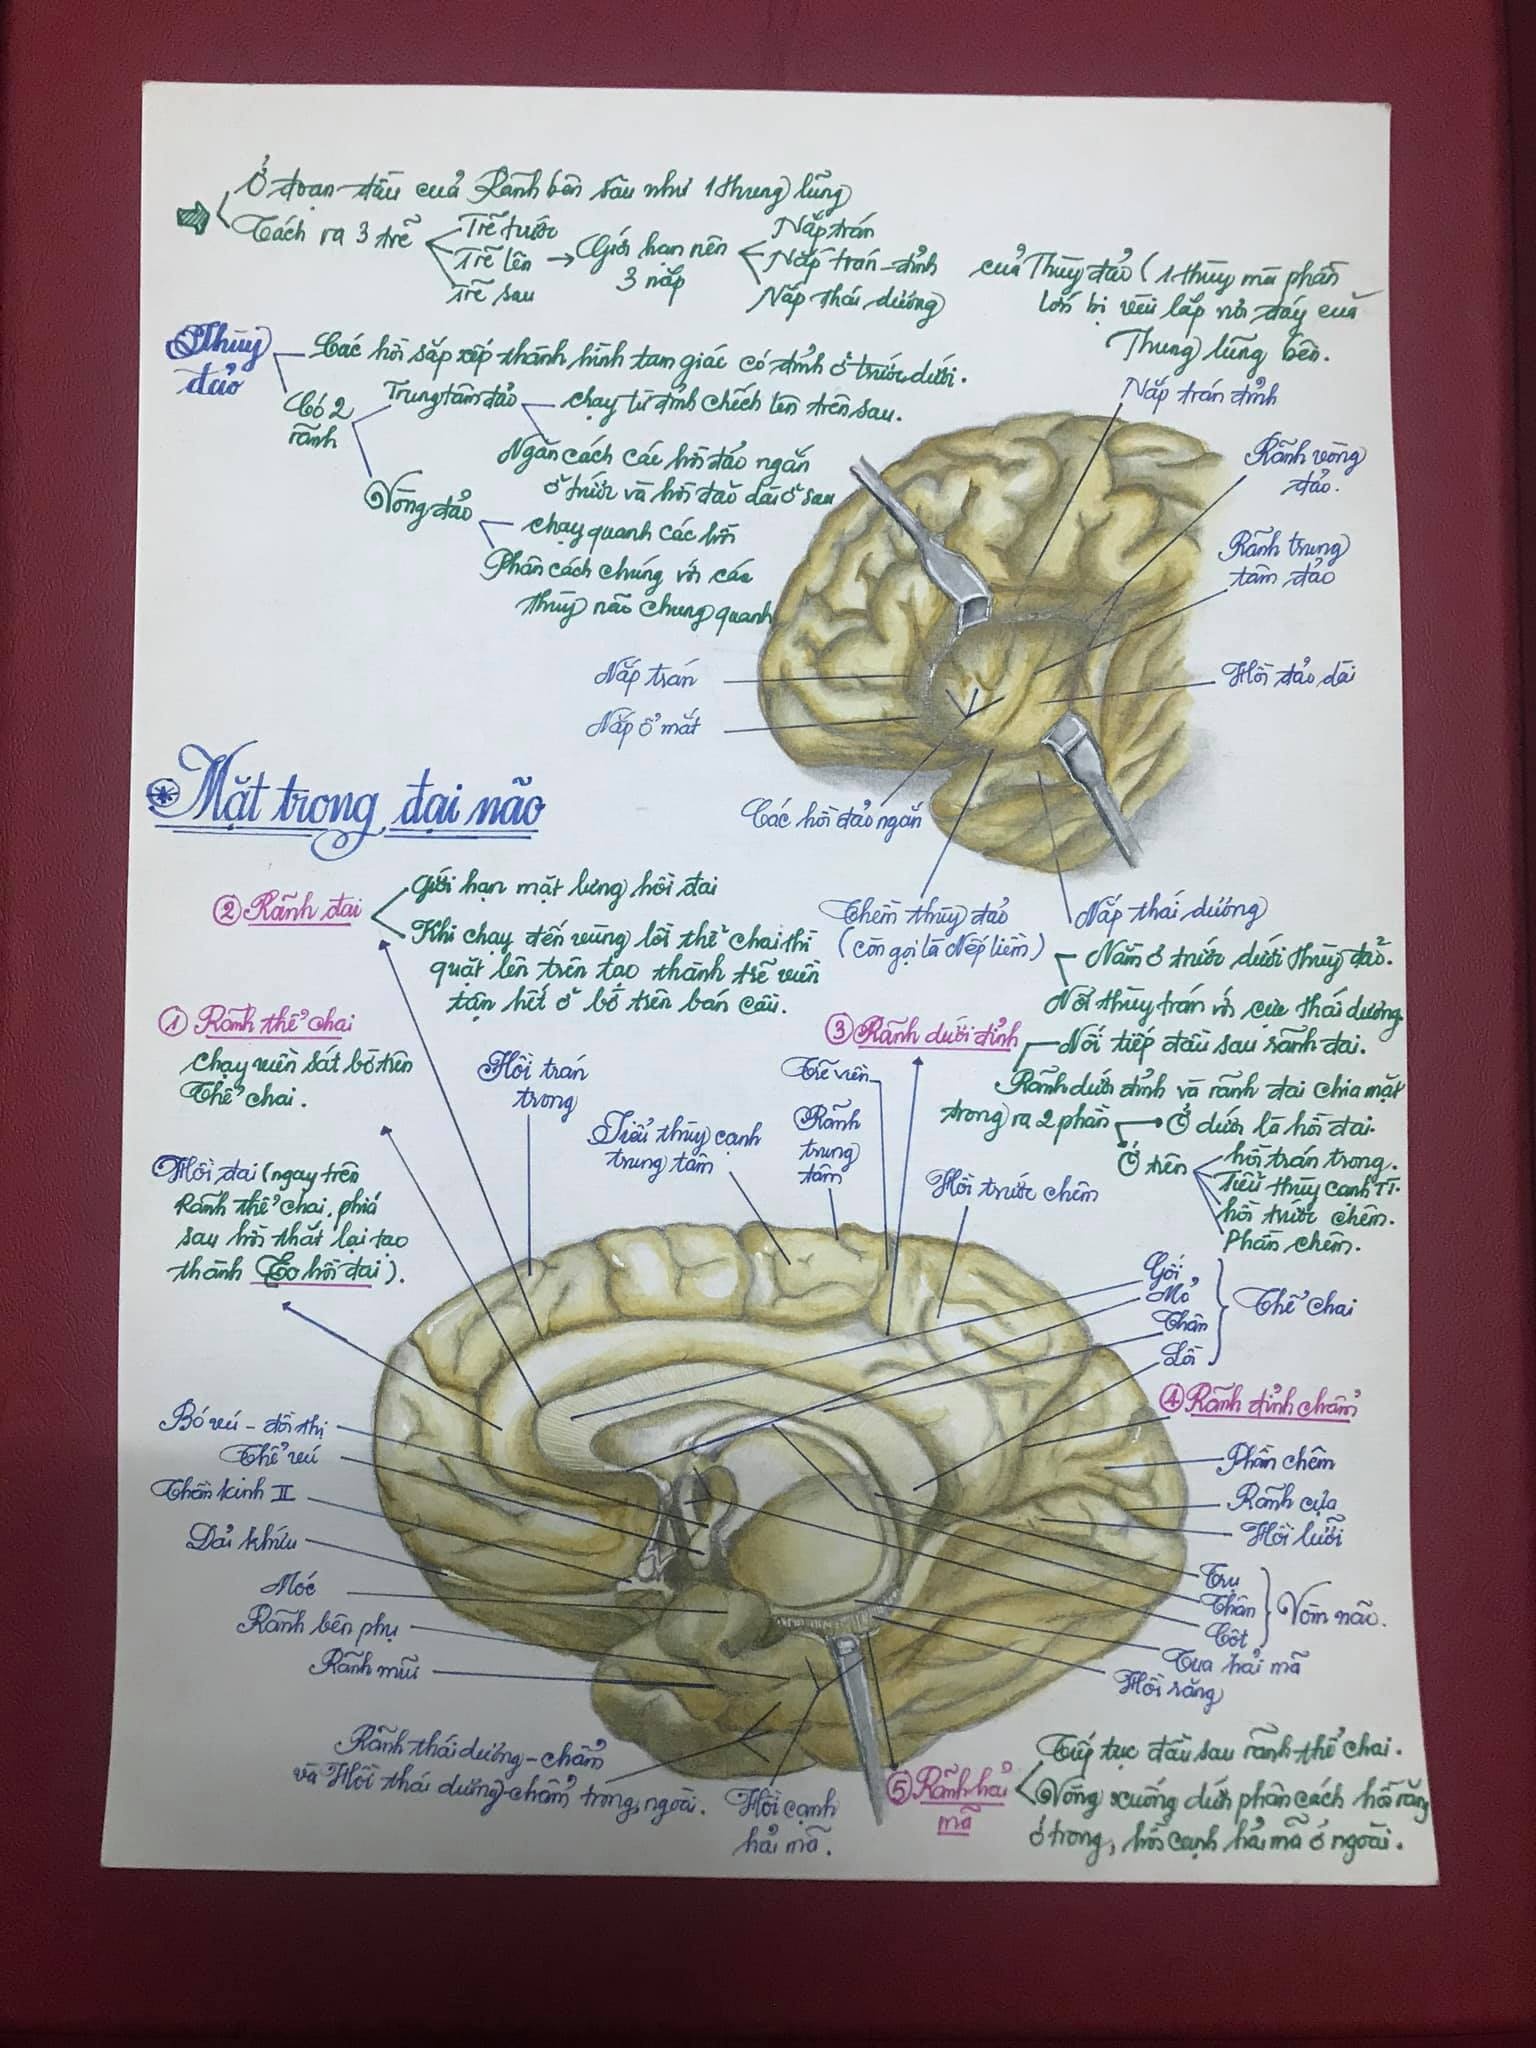 Ở đoạn đầu của Rãnh bên sâu như 1 thung lũng
Tách ra 3 trẽ
Trẽ trước
Trẽ lên
Trẽ sau
Giới hạn nên
3 nắp
Nắp trán
Nắp trán-đỉnh
Nắp thái dương
của Thùy đảo (1 thùy mà phần
lớn bị vùi lấp nơi đáy của
Thung lũng bên.
Thùy
đảo
Các hồi sắp xếp thành hình tam giác có đỉnh ở trước, dưới.
Có 2
rãnh
Trung tâm đảo
chạy từ đỉnh chếch lên trên sau.
Ngăn cách các hồi đảo ngắn
ở trước và hồi đảo dài ở sau
Vòng đảo
chạy quanh các hồi
Phân cách chúng với các
thùy não chung quanh
Nắp trán đỉnh
Rãnh vòng
đảo.
Rãnh trung
tâm đảo
Hồi đảo dài
Nắp trán
Nắp ổ mắt
Các hồi đảo ngắn
Thềm thùy đảo
(còn gọi là Nếp liềm)
Nắp thái dương
Nằm ở trước dưới thùy đảo.
Nối thùy trán với cực thái dương
Mặt trong đại não
② Rãnh đai
Giới hạn mặt lưng hồi đai
Khi chạy đến vùng lồi thể chai thì
quặt lên trên tạo thành trẽ viền
tận hết ở bờ trên bán cầu.
① Rãnh thể chai
chạy viền sát bờ trên
Thể chai.
③ Rãnh dưới đỉnh
Nối tiếp đầu sau rãnh đai.
Rãnh dưới đỉnh và rãnh đai chia mặt
trong ra 2 phần
Ở dưới là hồi đai
Ở trên
hồi trán trong.
Tiểu thùy cạnh TT.
hồi trước chêm.
Phần chêm.
Hồi trán
trong
Tiểu thùy cạnh
trung tâm
Trẽ viền
Rãnh
trung
tâm
Hồi trước chêm
Hồi đai (ngay trên
Rãnh thể chai, phía
sau hồi thắt lại tạo
thành Eo hồi đai).
Gối
Mỏ
Thân
Lồi
Thể chai
④ Rãnh đỉnh chẩm
Phần chêm
Rãnh cựa
Hồi lưỡi
Bó vú - đồi thị
Thể vú
Thần kinh II
Dải khứu
Móc
Rãnh bên phụ
Rãnh mũi
Trụ
Thân
Cột
Vòm não.
Tua hải mã
Hồi răng
Rãnh thái dương-chẩm
và Hồi thái dương-chẩm trong, ngoài.
Hồi cạnh
hải mã.
⑤ Rãnh hải
mã
Tiếp tục đầu sau rãnh thể chai.
Vòng xuống dưới phân cách hồi răng
ở trong, hồi cạnh hải mã ở ngoài.